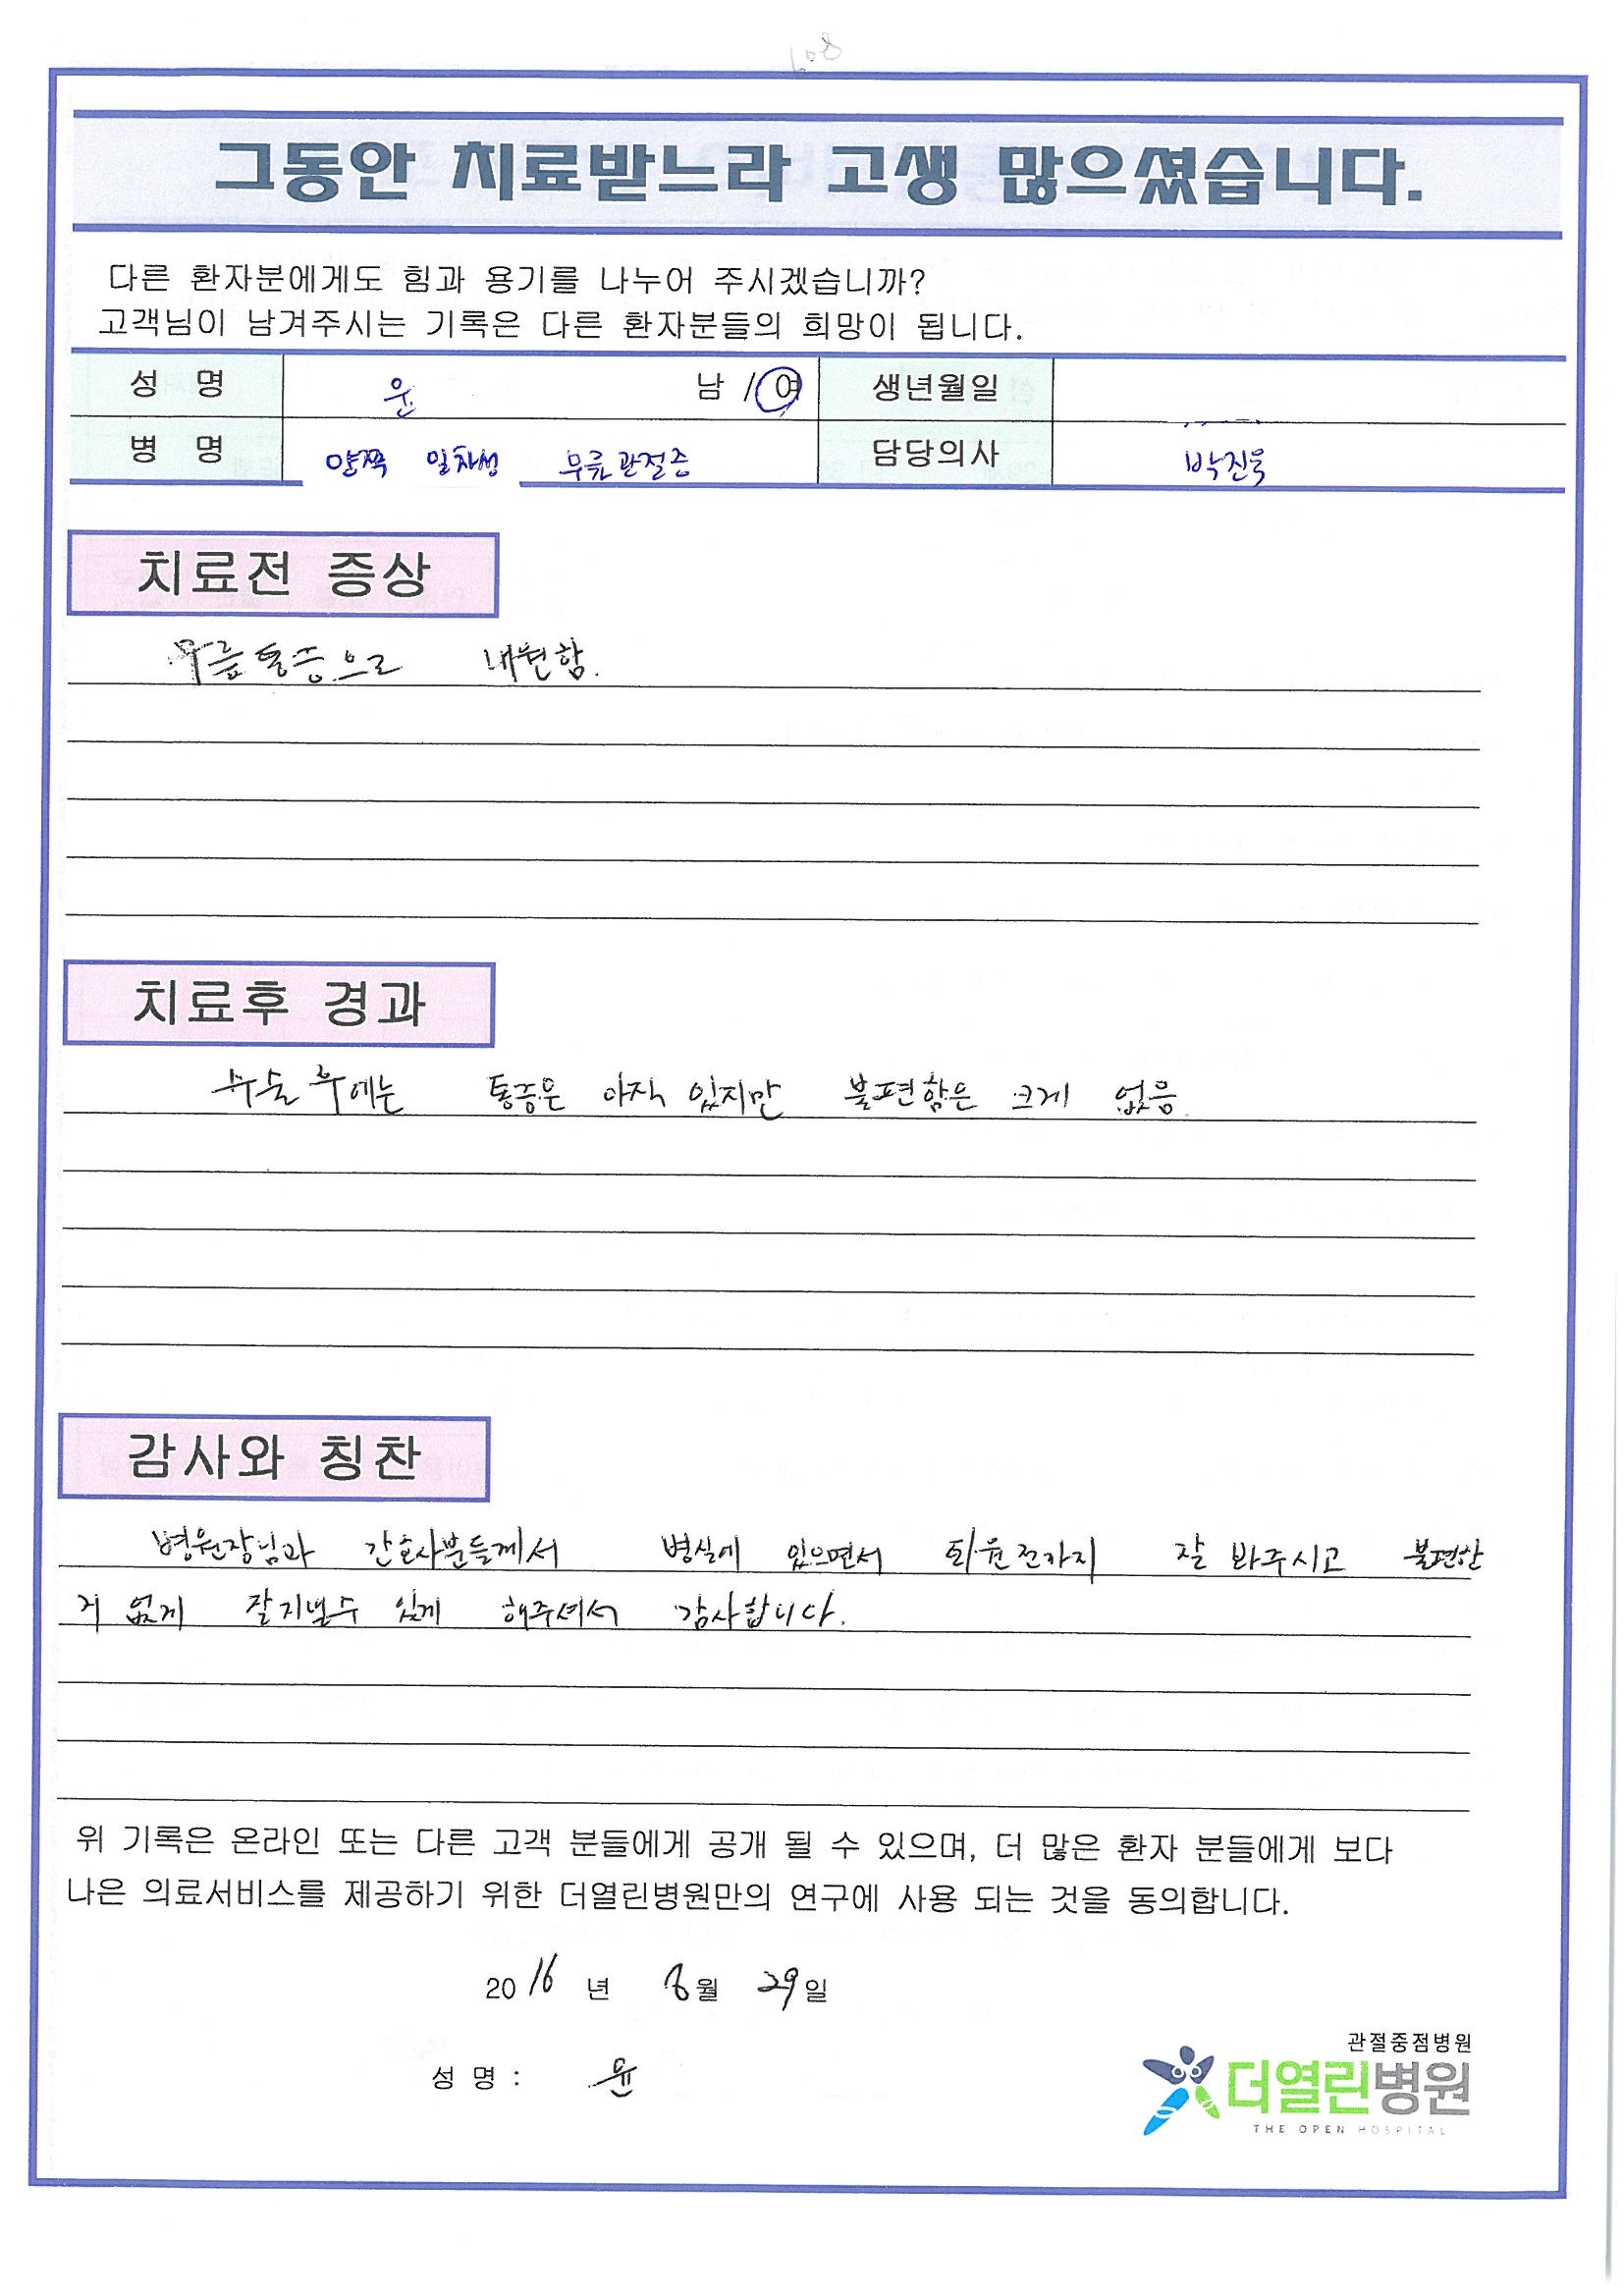 608
그동안 치료받느라 고생 많으셨습니다.
다른 환자분에게도 힘과 용기를 나누어 주시겠습니까?
고객님이 남겨주시는 기록은 다른 환자분들의 희망이 됩니다.
성 명 윤 남 / 여 생년월일
병 명 양쪽 일차성 무릎관절증 담당의사 박진욱
치료전 증상
무릎통증으로 내원함.
치료후 경과
수술 후에는 통증은 아직 있지만 불편함은 크게 없음.
감사와 칭찬
병원장님과 간호사분들께서 병실에 있으면서 퇴원전까지 잘 봐주시고 불편한
거 없게 잘지낼수 있게 해주셔서 감사합니다.
위 기록은 온라인 또는 다른 고객 분들에게 공개 될 수 있으며, 더 많은 환자 분들에게 보다
나은 의료서비스를 제공하기 위한 더열린병원만의 연구에 사용 되는 것을 동의합니다.
2016 년 8월 29일
성 명 : 윤
관절중점병원
더열린병원
THE OPEN HOSPITAL